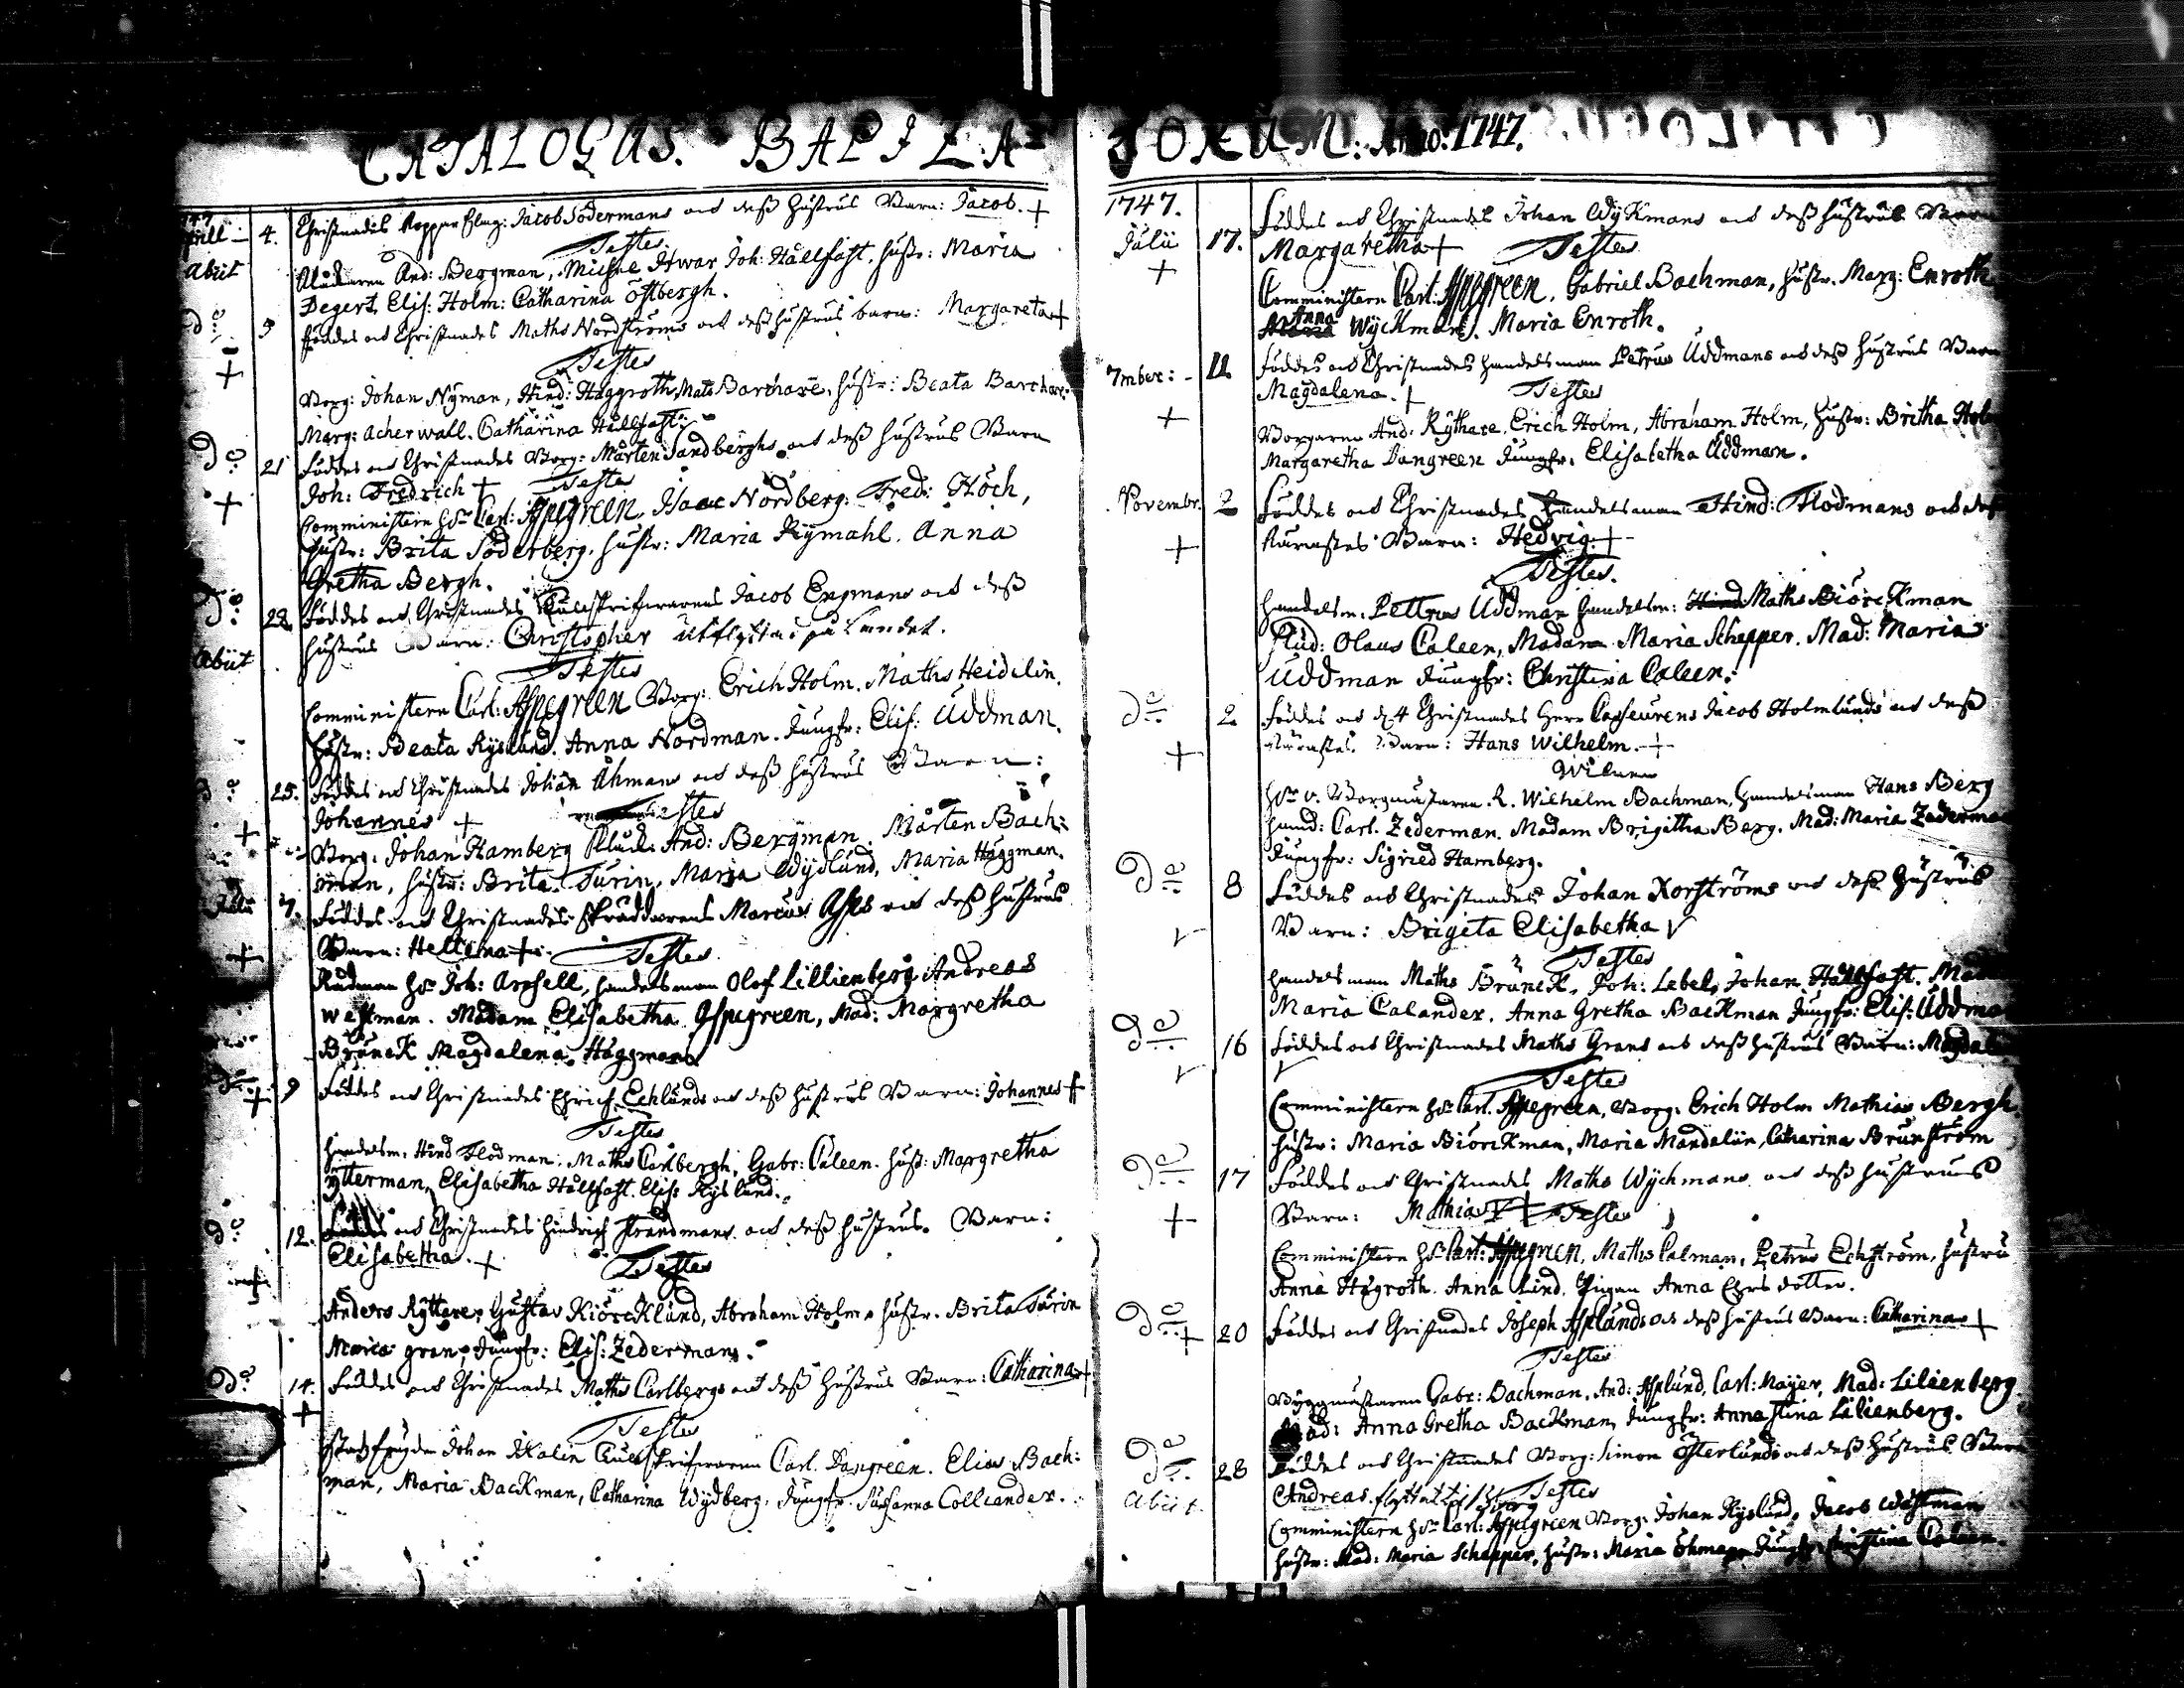 CATALOGUS. BAPTIZA
4. Christnades Kopparslag: Jacob Södermans och dess hustrus Barn: Jacob. +
Testes
And: Bergman, Michel Joh: Hällfast, hustr: Maria
Abiit
Degert, Elis: Holm: Catharina Östbergh.
do 5 Föddes och Christnades Maths Nordströms och dess hustrus barn: Margareta +
Testes
Borg: Johan Nyman, Hind: Häggroth, Mats Barthare, hustr: Beata Barthare
Marg: Acherwall. Catharina Hällfast:
do 21 Föddes och Christnades Borg: Mårten Sandberghs och dess hustrus Barn
Joh: Fredrich + Testes
Comministern Hr Carl: Aspegreen, Isaac Nordberg: Fred: Höch,
hustr: Brita Söderberg, hustr: Maria Rymahl. Anna
Gretha Bergh.
do 22 Föddes och Christnades Jacob Engmans och dess
Abiit
hustrus Barn: Christopher på Landet.
Testes
Comministern Carl: Aspegreen Borg: Erich Holm. Maths Heidelin.
hustr: Beata Ryslund. Anna Nordman. Jungfr: Elis: Uddman.
do 25. Föddes och Christnades Johan Åhmans och dess hustrus Barn:
Johannes + Testes
Borg: Johan Hamberg And: Bergman. Mårten Bach:
man, hustr: Brita Turin, Maria Wydlund, Maria Häggman.
Julii 7. Föddes och Christnades Skräddarens Marcus Asps och dess hustrus
Barn: Hellena + Testes
Rådman Hr Joh: Archsell, handelsman Olof Lillienberg Andreas
Westman. Madam Elisabetha Aspegreen, Mad: Margretha
Brunck Magdalena Häggman.
do + 9 Föddes och Christnades Ehrich Echlunds och dess hustrus Barn: Johannes +
Testes
handelsm. Hind Flodman. Maths Carlbergh, Gabr: Caleen. hust: Margretha
Ytterman, Elisabetha Hällfast. Elis: Ryslund.
do 12. Föddes och Christnades Hindrich Strandmans och dess hustrus Barn:
Elisabetha + Testes
Anders Ryttare, Gustav Kiörcklund, Abraham Holm, hustr. Brita Turin
Maria gran, Jungfr: Elis: Zederman.
do 14. Föddes och Christnades Maths Carlbergs och dess hustrus Barn: Catharina +
Testes
Johan Malin Carl. Dangreen. Elias Bach:
man, Maria Backman, Catharina Wydberg, Jungfr. Susanna Colliander.
TORUM: Anno: 1747.
1747.
Julii 17. Föddes och Christnades Johan Wyckmans och dess hustrus Barn
+ Margaretha + Testes
Comministern Carl: Aspegreen, Gabriel Bachman, hustr. Marg: Enroth
Anna Wyckman. Maria Enroth.
7mber: 11 Föddes och Christnades handelsman Petrus Uddmans och dess hustrus Barn
+ Magdalena. + Testes
Borgaren And: Rythare, Erich Holm, Abraham Holm, hustr: Britha Holm
Margaretha Dangreen Jungfr. Elisabetha Uddman.
Novembr. 2 Föddes och Christnades handelsman Hind: Flodmans och dess
+ Käraste Barn: Hedvig +
Testes.
handelsm. Pettrus Uddman handelsm: Maths Biörckman
Stud: Olaus Caleen, Madam Maria Schepper. Mad: Maria
Uddman Jungfr: Christina Caleen.
do 2. Föddes och d. 4 Christnades Herr Casseurens Jacob Holmlunds och dess
+ Käraste Barn: Hans Wilhelm. +
Wilnen
Hr v. Borgmästaren R. Wilhelm Bachman, handelsman Hans Berg
handl: Carl. Zederman. Madam Brigitha Berg. Mad: Maria Zederman
Jungfr: Sigried Hamberg.
do 8 Föddes och Christnades Johan Norströms och dess hustrus
Barn: Brigita Elisabetha
Testes
handelsman Maths Brunck, Joh: Lebel, Johan Hällfast. Mad
Maria Calander. Anna Gretha Backman Jungfr: Elis: Uddman
do 16 Föddes och Christnades Maths Grans och dess hustrus Barn: Magdalena
Testes
Comministern Hr Carl. Aspegreen, Borg: Erich Holm Mathias Bergh.
hustr: Maria Biörckman, Maria Mandelin, Catharina Brunström
do 17 Föddes och Christnades Maths Wychmans och dess hustrus
+ Barn: Mathias + Testes
Comministern Hr Carl: Aspegreen, Maths Calman, Petrus Echström, hustru
Anna Hägroth. Anna Lind. Pigan Anna Ehrsdotter.
do + 20 Föddes och Christnades Joseph Asplunds och dess hustrus Barn: Catharina +
Testes
Byggmästaren Gabr: Bachman. And: Asplund, Carl: Mayer, Mad: Lilienberg
Mad: Anna Gretha Backman, Jungfr: Anna Stina Lilienberg.
do 28 Föddes och Christnades Borg: Simon Österlunds och dess hustrus Barn
Abiit. Andreas. Testes
Comministern Hr Carl: Aspegreen Borg: Johan Ryslund, Jacob Wästman
hustr: Mad: Maria Schepper, hustr: Maria Öhman Jungfr: Christina Caleen.